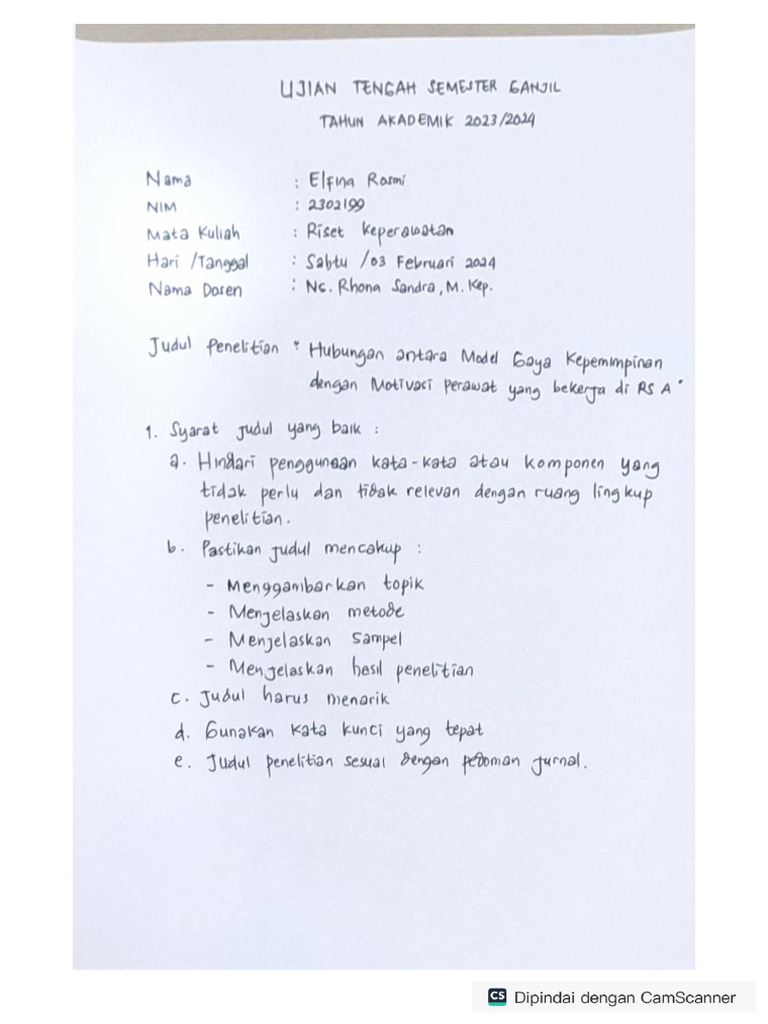 UJIAN TENGAH SEMESTER GANJIL
TAHUN AKADEMIK 2023/2024
Nama : Elfina Rosmi
NIM : 2302199
Mata Kuliah : Riset Keperawatan
Hari /Tanggal : Sabtu /03 Februari 2024
Nama Dosen : Ns. Rhona Sandra, M. Kep.
Judul Penelitian " Hubungan antara Model Gaya Kepemimpinan
dengan Motivasi perawat yang bekerja di RS A "
1. Syarat judul yang baik :
a. Hindari penggunaan kata-kata atau komponen yang
tidak perlu dan tidak relevan dengan ruang lingkup
penelitian.
b. Pastikan judul mencakup :
- Menggambarkan topik
- Menjelaskan metode
- Menjelaskan sampel
- Menjelaskan hasil penelitian
c. Judul harus menarik
d. Gunakan kata kunci yang tepat
e. Judul penelitian sesuai dengan pedoman jurnal.
CS Dipindai dengan CamScanner